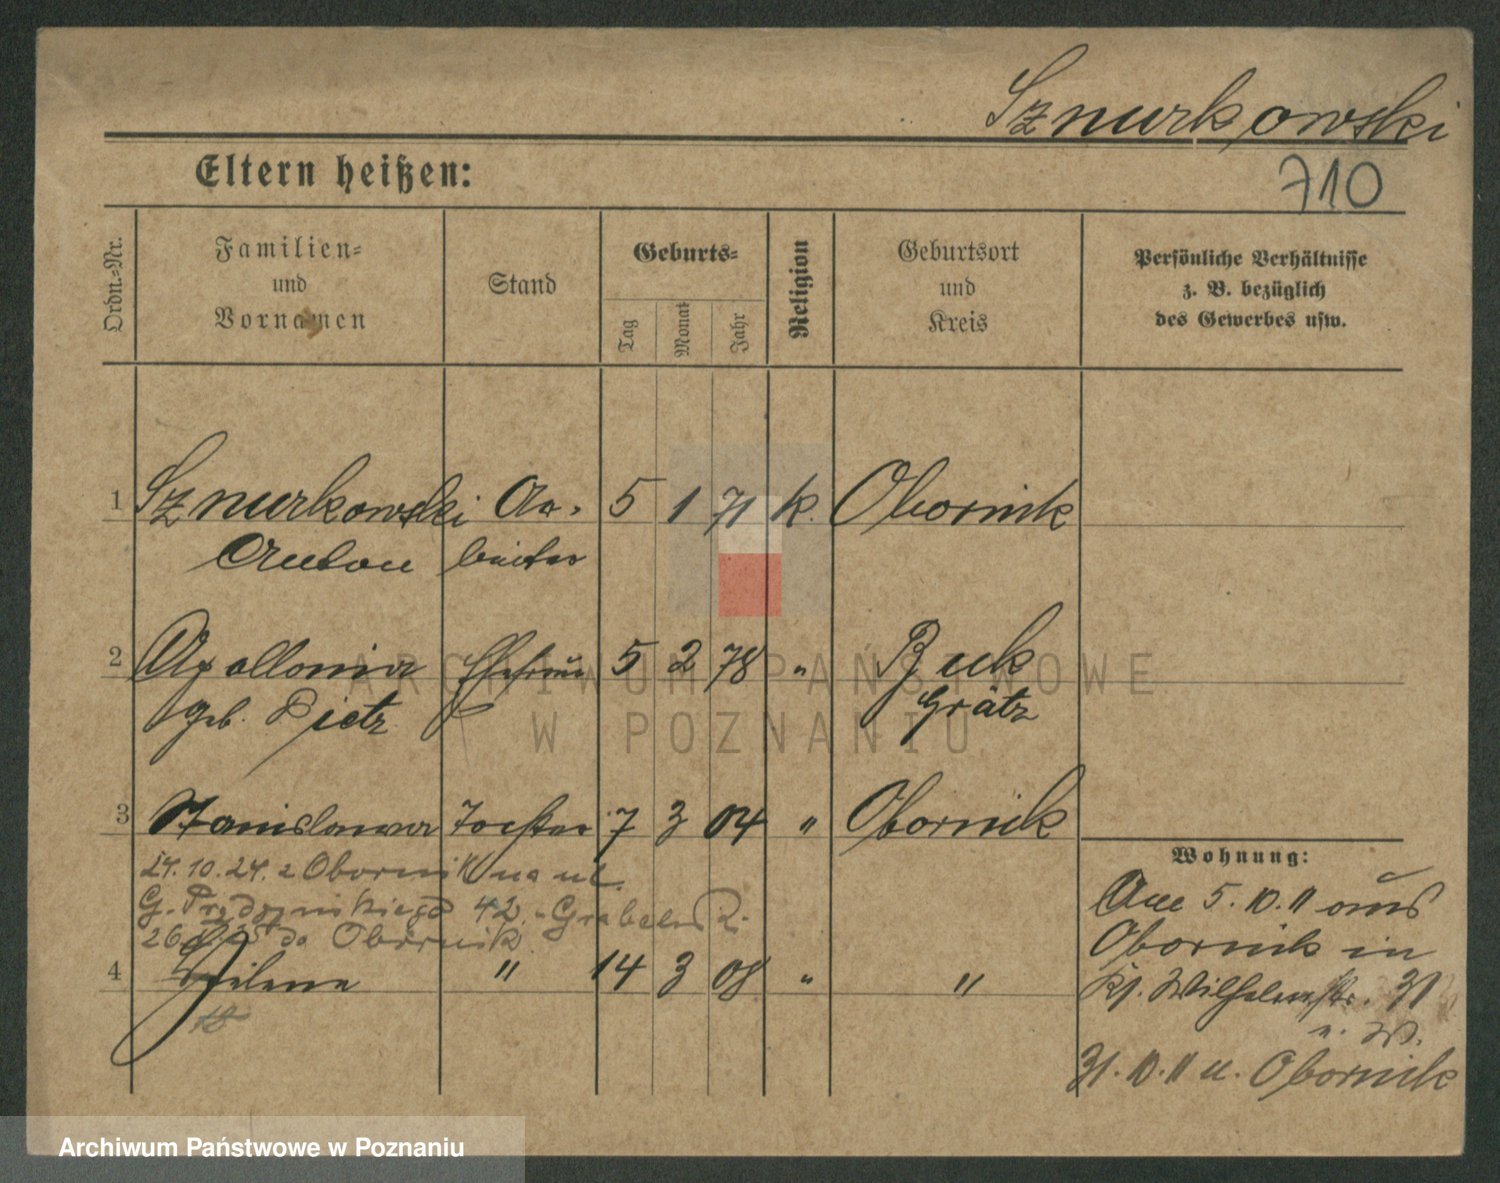 Sznurkowski
Eltern heißen:
710
Ordn.-Nr.
Familien-
und
Vornamen
Stand
Geburts-
Tag
Monat
Jahr
Religion
Geburtsort
und
Kreis
Persönliche Verhältnisse
z. B. bezüglich
des Gewerbes usw.
1 Sznurkowski Ar- 5 1 71 k. Obornik
Anton beiter
2 Apollonia Ehefrau 5 2 78 " Buk
geb. Pietz Grätz
3 Stanislawa Tochter 7 3 04 " Obornik
24.10.24. z Obornik na ul.
G. Prądzyńskiego 42.
26 do Obornik
4 " 14 3 08 " "
Wohnung:
Am 5.10.11 aus
Obornik in
Kr. Wilhelmstr. 31
n. W.
31.10.11 n. Obornik
ARCHIWUM PAŃSTWOWE
W POZNANIU
Archiwum Państwowe w Poznaniu